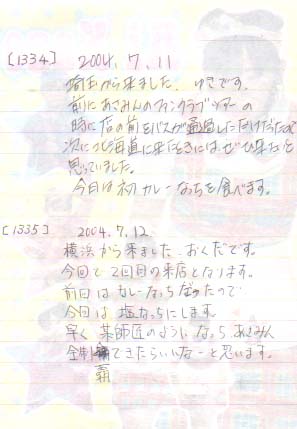 [1334] 2004.7.11
埼玉から来ました、ゆきです。
前にあさみんのファンクラブツアーの
時に店の前をバスが通過しただけだったので
次に北海道に来たときにはぜひ来たいと
思っていました。
今日は初カレーなっちを食べます。
[1335] 2004.7.12.
横浜から来ました おくだです。
今回で2回目の来店となります。
前回はカレーなっちだったので
今日は塩なっちにします。
早く 某師匠のように なっち あさみん
全制覇できたらいいなーと思います。